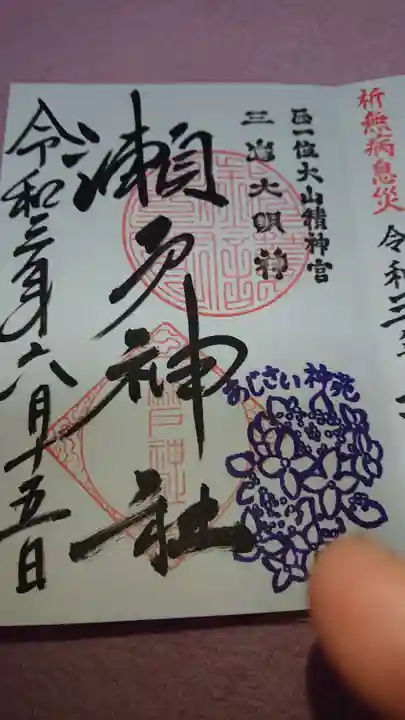 祈無病息災
令和三年六
正一位大山積神宮
三島大明神
瀬戸神社
令和三年六月十五日
あじさい神苑